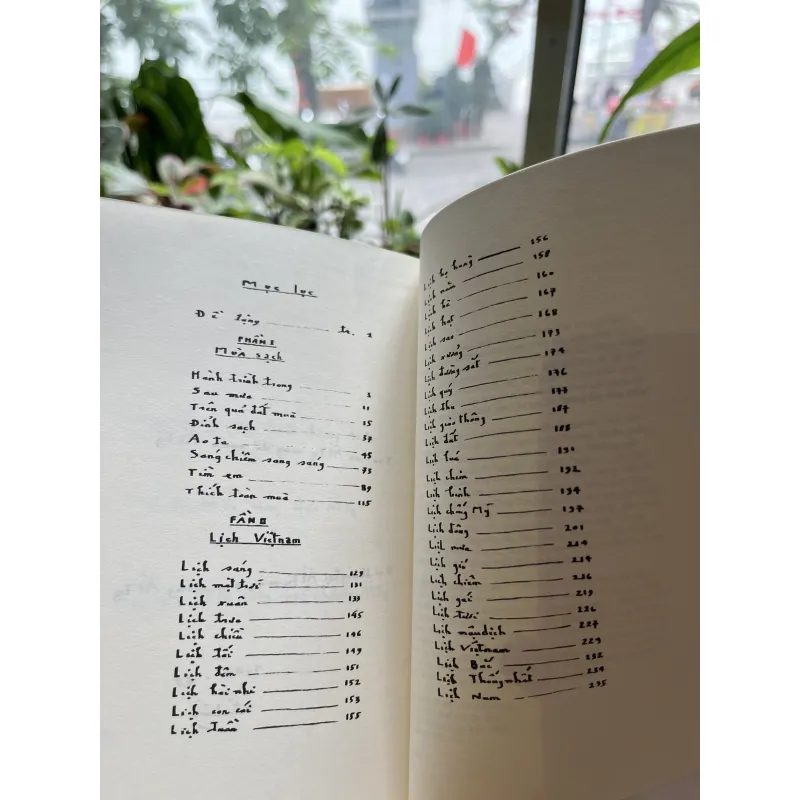 Mục lục
Đề tặng tr. 1
PHẦN I
Mùa sạch
Hành trình trong 3
Sau mưa 11
Trên quả đất mùa 15
Đỉnh sạch 37
Ao ta 45
Sáng chiêm sang sáng 73
Tìm em 89
Thiết toàn mùa 115
FẦN II
Lịch Việtnam
Lịch sáng 129
Lịch mặt trời 131
Lịch xuân 133
Lịch trưa 145
Lịch chiều 146
Lịch tối 149
Lịch đêm 151
Lịch hài nhi 152
Lịch con cái 153
Lịch tuần 155
Lịch họ hàng 156
Lịch năm 158
Lịch 160
Lịch hạt 167
Lịch sao 168
Lịch xưởng 173
Lịch đường sắt 174
Lịch quý 176
Lịch thu 177
Lịch giao thông 187
Lịch đất 188
Lịch 191
Lịch chim 192
Lịch bình 194
Lịch chống Mỹ 197
Lịch đông 201
Lịch mưa 214
Lịch gió 214
Lịch chiêm 216
Lịch gái 219
Lịch trời 226
Lịch mậu dịch 227
Lịch Việtnam 229
Lịch Bắc 232
Lịch Thống nhất 234
Lịch Nam 235